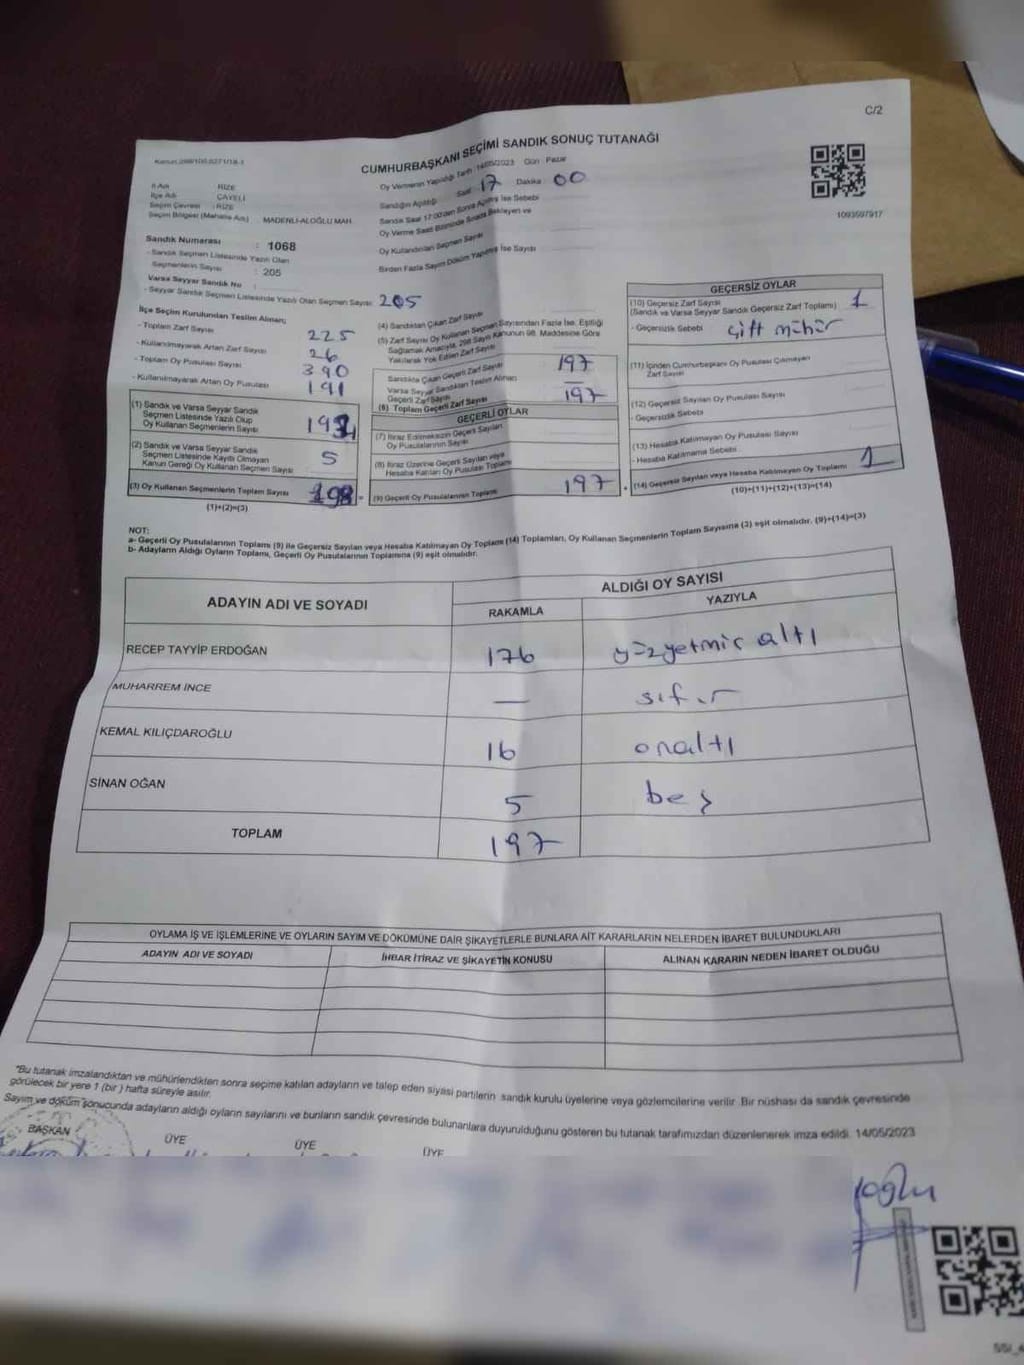 C/2
CUMHURBAŞKANI SEÇİMİ SANDIK SONUÇ TUTANAĞI
1093597917
İl Adı : RİZE
İlçe Adı : ÇAYELİ
Seçim Çevresi : RİZE
Seçim Bölgesi (Mahalle Adı) : MADENLİ-ALOĞLU MAH.
Sandık Numarası : 1068
- Sandık Seçmen Listesinde Yazılı Olan
Seçmenlerin Sayısı : 205
Varsa Seyyar Sandık No :
- Seyyar Sandık Seçmen Listesinde Yazılı Olan Seçmen Sayısı: 205
Oy Vermenin Yapıldığı Tarih :14/05/2023 Gün : Pazar
Sandığın Açıldığı Saat 17 Dakika 00
Sandık Saat 17:00'den Sonra Açılmış İse Sebebi
Oy Verme Saati Bitiminde Sırada Bekleyen ve
Oy Kullandırılan Seçmen Sayısı
Birden Fazla Sayım Döküm Yapılmış İse Sayısı
İlçe Seçim Kurulundan Teslim Alınan;
- Toplam Zarf Sayısı 225
- Kullanılmayarak Artan Zarf Sayısı 26
- Toplam Oy Pusulası Sayısı 390
- Kullanılmayarak Artan Oy Pusulası 191
(1) Sandık ve Varsa Seyyar Sandık
Seçmen Listesinde Yazılı Olup
Oy Kullanan Seçmenlerin Sayısı
(2) Sandık ve Varsa Seyyar Sandık
Seçmen Listesinde Kayıtlı Olmayan
Kanun Gereği Oy Kullanan Seçmen Sayısı 5
(3) Oy Kullanan Seçmenlerin Toplam Sayısı 198
(1)+(2)=(3)
(4) Sandıktan Çıkan Zarf Sayısı
(5) Zarf Sayısı Oy Kullanan Seçmen Sayısından Fazla İse, Eşitliği
Sağlamak Amacıyla, 298 Sayılı Kanunun 98. Maddesine Göre
Yakılarak Yok Edilen Zarf Sayısı
Sandıkta Çıkan Geçerli Zarf Sayısı 197
Varsa Seyyar Sandıktan Teslim Alınan
Geçerli Zarf Sayısı —
(6) Toplam Geçerli Zarf Sayısı 197
GEÇERLİ OYLAR
(7) İtiraz Edilmeksizin Geçerli Sayılan
Oy Pusulalarının Sayısı
(8) İtiraz Üzerine Geçerli Sayılan veya
Hesaba Katılan Oy Pusulası Toplamı
(9) Geçerli Oy Pusulalarının Toplamı 197
GEÇERSİZ OYLAR
(10) Geçersiz Zarf Sayısı 1
(Sandık ve Varsa Seyyar Sandık Geçersiz Zarf Toplamı)
- Geçersizlik Sebebi çift mühür
(11) İçinden Cumhurbaşkanı Oy Pusulası Çıkmayan
Zarf Sayısı
(12) Geçersiz Sayılan Oy Pusulası Sayısı
- Geçersizlik Sebebi
(13) Hesaba Katılmayan Oy Pusulası Sayısı
- Hesaba Katılmama Sebebi
(14) Geçersiz Sayılan veya Hesaba Katılmayan Oy Toplamı 1
(10)+(11)+(12)+(13)=(14)
NOT:
a- Geçerli Oy Pusulalarının Toplamı (9) ile Geçersiz Sayılan veya Hesaba Katılmayan Oy Toplamı (14) Toplamları, Oy Kullanan Seçmenlerin Toplam Sayısına (3) eşit olmalıdır. (9)+(14)=(3)
b- Adayların Aldığı Oyların Toplamı, Geçerli Oy Pusulalarının Toplamına (9) eşit olmalıdır.
ADAYIN ADI VE SOYADI
ALDIĞI OY SAYISI
RAKAMLA YAZIYLA
RECEP TAYYİP ERDOĞAN 176 yüzyetmiş altı
MUHARREM İNCE — sıfır
KEMAL KILIÇDAROĞLU 16 onaltı
SİNAN OĞAN 5 beş
TOPLAM 197
OYLAMA İŞ VE İŞLEMLERİNE VE OYLARIN SAYIM VE DÖKÜMÜNE DAİR ŞİKAYETLERLE BUNLARA AİT KARARLARIN NELERDEN İBARET BULUNDUKLARI
ADAYIN ADI VE SOYADI İHBAR İTİRAZ VE ŞİKAYETİN KONUSU ALINAN KARARIN NEDEN İBARET OLDUĞU
"Bu tutanak imzalandıktan ve mühürlendikten sonra seçime katılan adayların ve talep eden siyasi partilerin sandık kurulu üyelerine veya gözlemcilerine verilir. Bir nüshası da sandık çevresinde
görülecek bir yere 1 (bir) hafta süreyle asılır.
Sayım ve döküm sonucunda adayların aldığı oyların sayılarını ve bunların sandık çevresinde bulunanlara duyurulduğunu gösteren bu tutanak tarafımızdan düzenlenerek imza edildi. 14/05/2023
BAŞKAN ÜYE ÜYE ÜYE